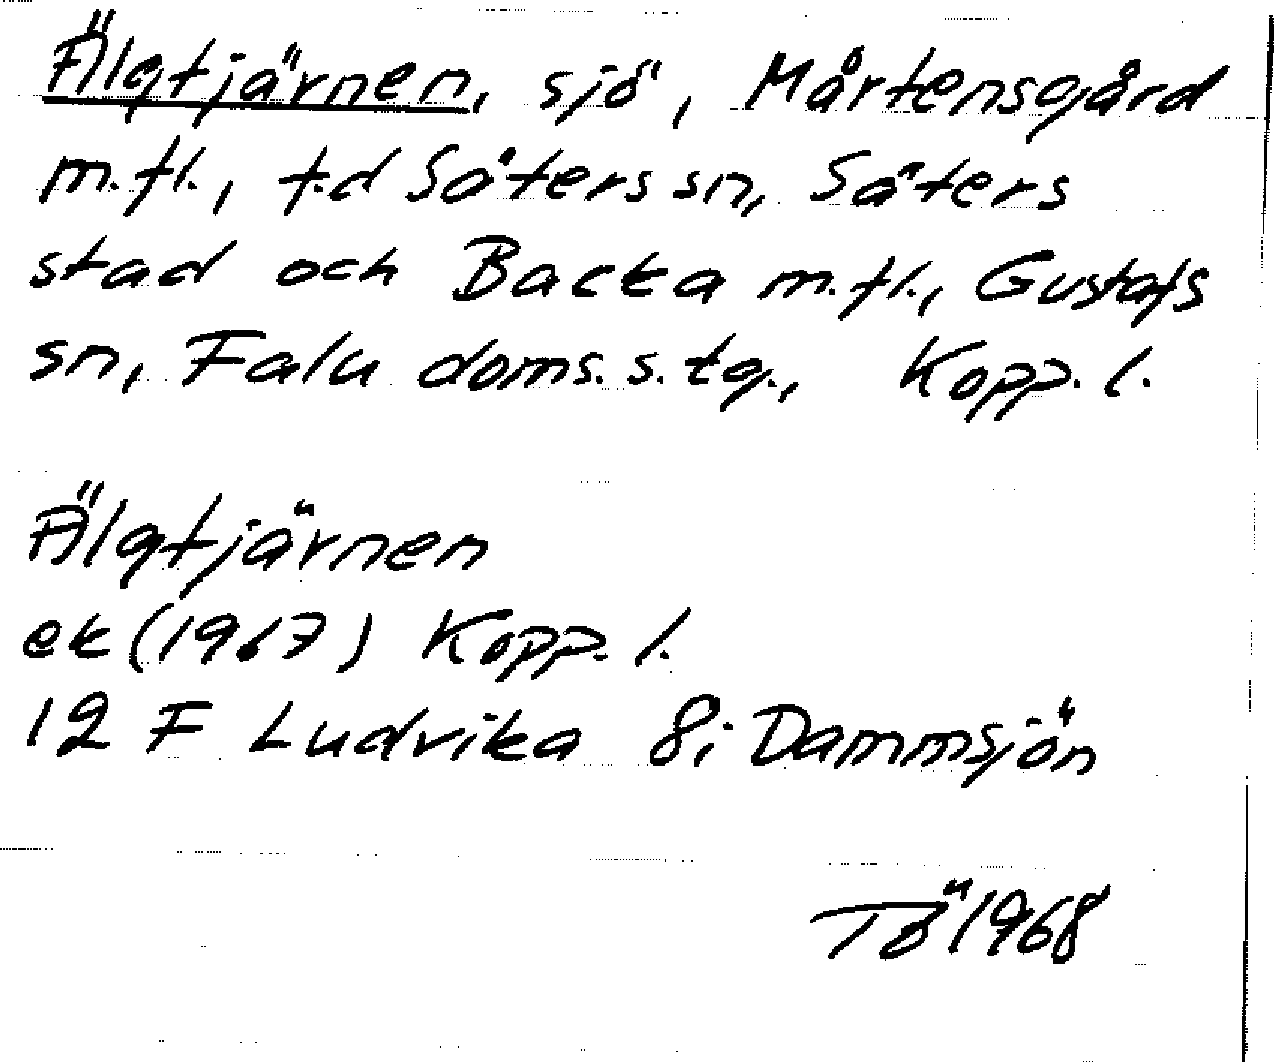 Älgtjärnen, sjö, Mårtensgård
m.fl., f.d Säters sn, Säters
stad och Backa m.fl., Gustafs
sn, Falu doms.s. tg., Kopp. l.
Älgtjärnen
ek (1967) Kopp. l.
12 F Ludvika 8i Dammsjön
TÖ 1968